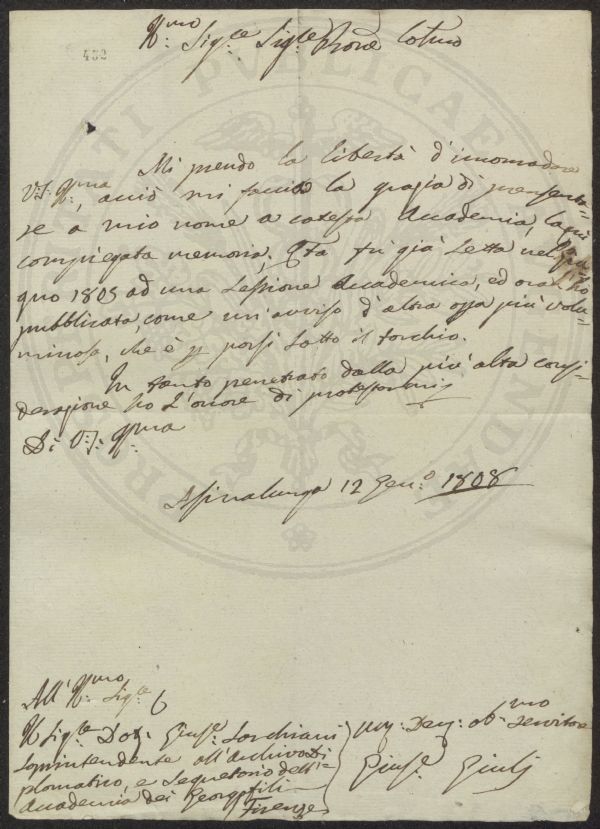 Ill.mo Sig.re Sig.re Prone Colmo
452
Mi prendo la libertà d'incomodare
V:S: Ill.ma, acciò mi faccia la grazia di presenta-
re a mio nome a cotesta Accademia, la qui
compiegata memoria; Essa fù già Letta nel
1805 ad una Sessione Accademica, ed ora
pubblicata, come un'avviso d'altra op.a più volu-
minosa, che è p porsi sotto il torchio.
In tanto penetrato dalla più alta consi-
derazione ho l'onore di protestarmi
Di V:S: Ill.ma
Asinalunga 12 Gen:o 1808
All' Ill.mo Sig.re
Il Sig.re Dot. Giusep. Sarchiani
Soprintendente all'Archivo Di-
plomatico, e Segretario dell'-
Accademia dei Georgofili
Firenze
Um: Dev: Ob:mo Servitore
Giusep. Giulj